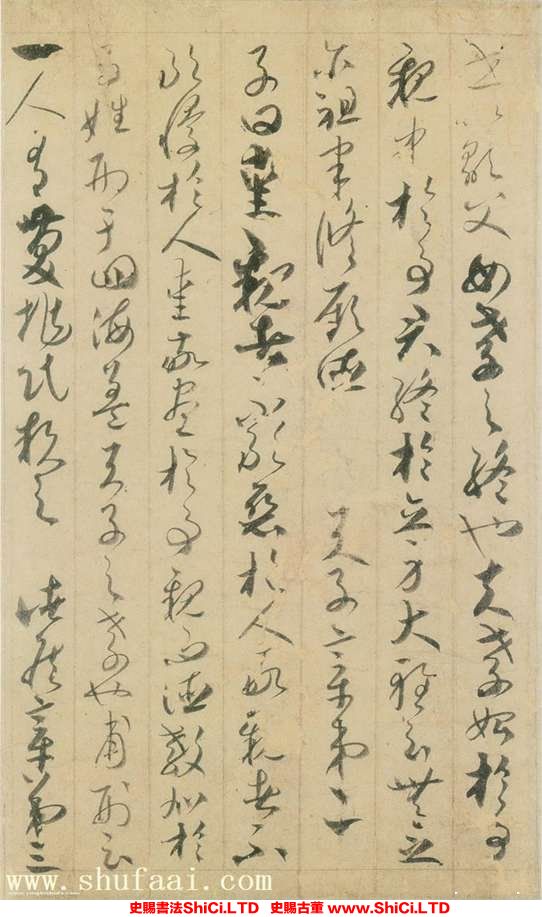 世以顯父母孝之終也夫孝始於事
親中於事君終於立身大雅云無念
尒祖聿脩厥德　天子章第二
子曰愛親者不敢惡於人敬親者不
敢慢於人愛敬盡於事親而德教加於
百姓刑于四海蓋天子之孝也甫刑云
一人有慶兆民賴之　諸侯章第三
www.shufaai.com
史賜書法ShiCi.LTD 史賜古董 www.ShiCi.LTD